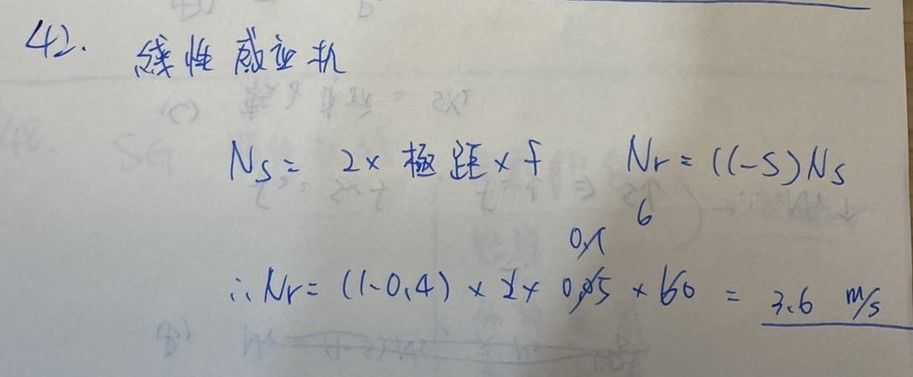 42. 綫性感应机
Ns = 2 × 極距 × f Nr = (1-s) Ns
0.1 6
∴ Nr = (1-0.4) × 2 × 0.05 × 60 = 3.6 m/s